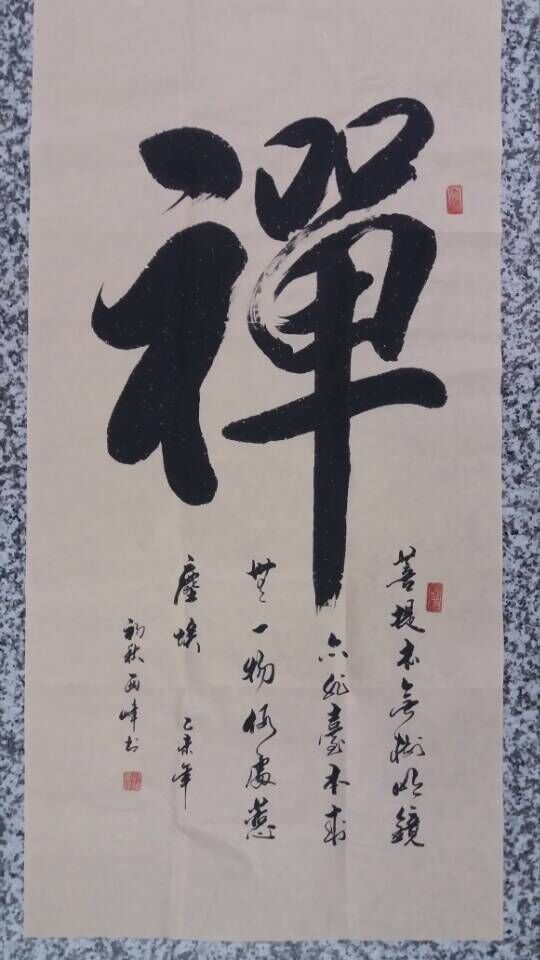 禪
菩提本無樹明鏡
亦非臺本来
無一物何處惹
塵埃 乙未年
初秋雨峰书